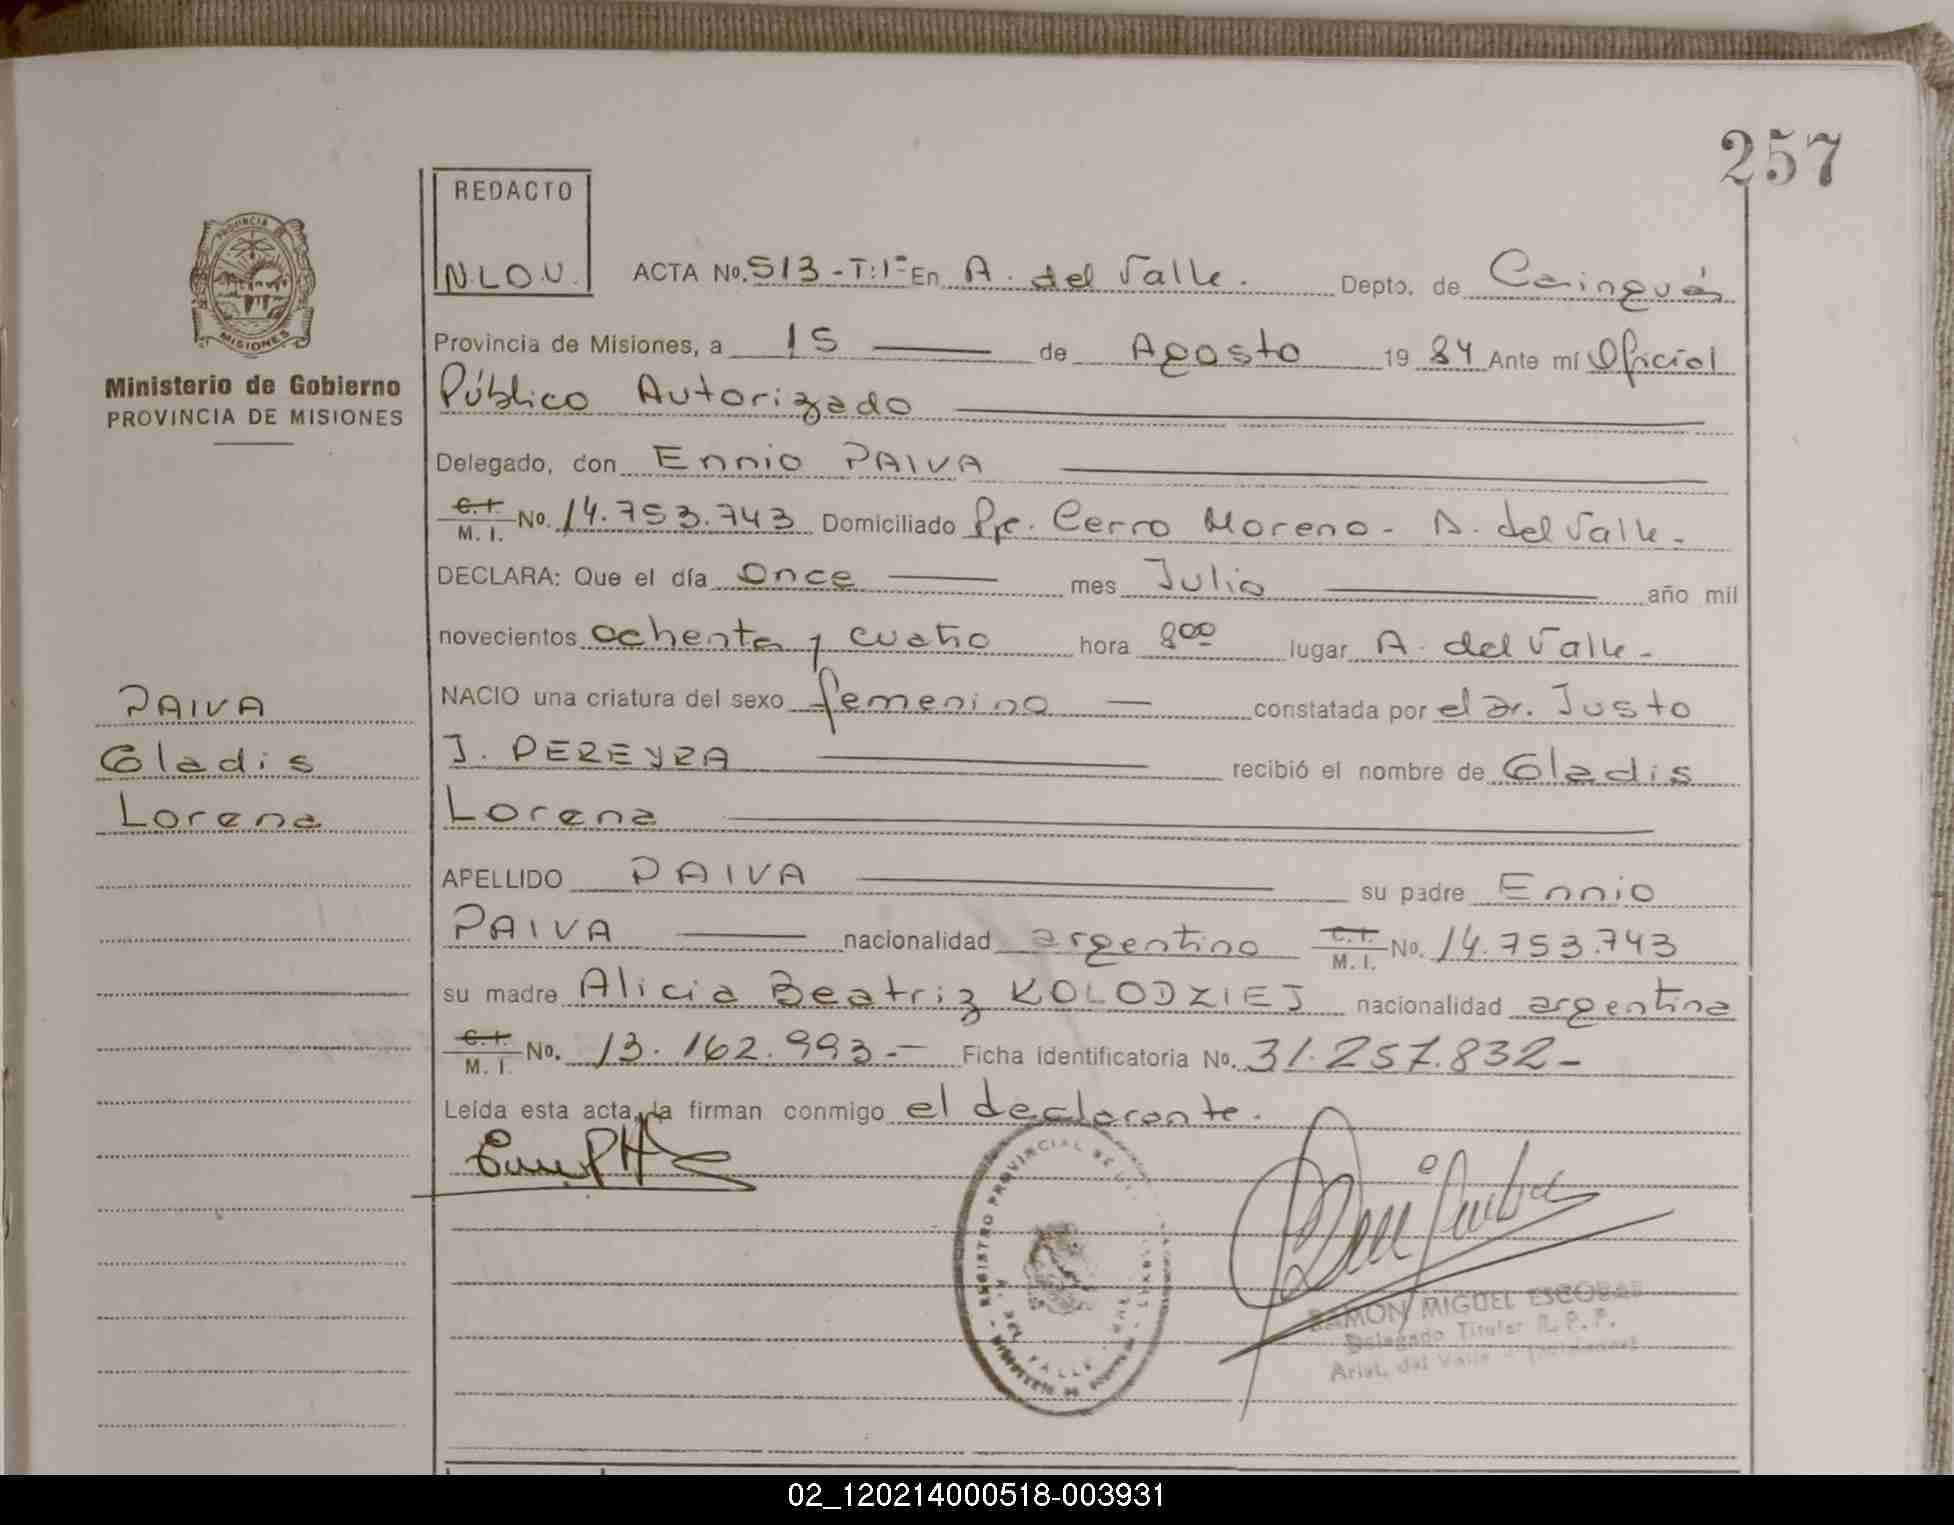 257
REDACTO
N.L.O.V.
PROVINCIA
MISIONES
Ministerio de Gobierno
PROVINCIA DE MISIONES
ACTA No. 513-T:1º En A. del Valle. Depto. de Cainguás
Provincia de Misiones, a 15 de Agosto 1984 Ante mí Oficial
Público Autorizado
Delegado, don Ennio PAIVA
C.I. M. I. No. 14.753.743 Domiciliado Pje. Cerro Moreno - A. del Valle -
DECLARA: Que el día Once mes Julio año mil
novecientos ochenta y cuatro hora 8 00 lugar A. del Valle -
NACIO una criatura del sexo femenino constatada por el Dr. Justo
J. PEREYRA recibió el nombre de Gladis
Lorena
PAIVA
Gladis
Lorena
APELLIDO PAIVA su padre Ennio
PAIVA nacionalidad argentino C.I. M. I. No. 14.753.743
su madre Alicia Beatriz KOLODZIEJ nacionalidad argentina
C.I. M. I. No. 13.162.993.- Ficha identificatoria No. 31.257.832-
Leída esta acta, la firman conmigo el declarante.
REGISTRO PROVINCIAL DE
DEL VALLE
RAMON MIGUEL ESCOBAR
Delegado Titular R. P. P.
Arist. del Valle
02_120214000518-003931